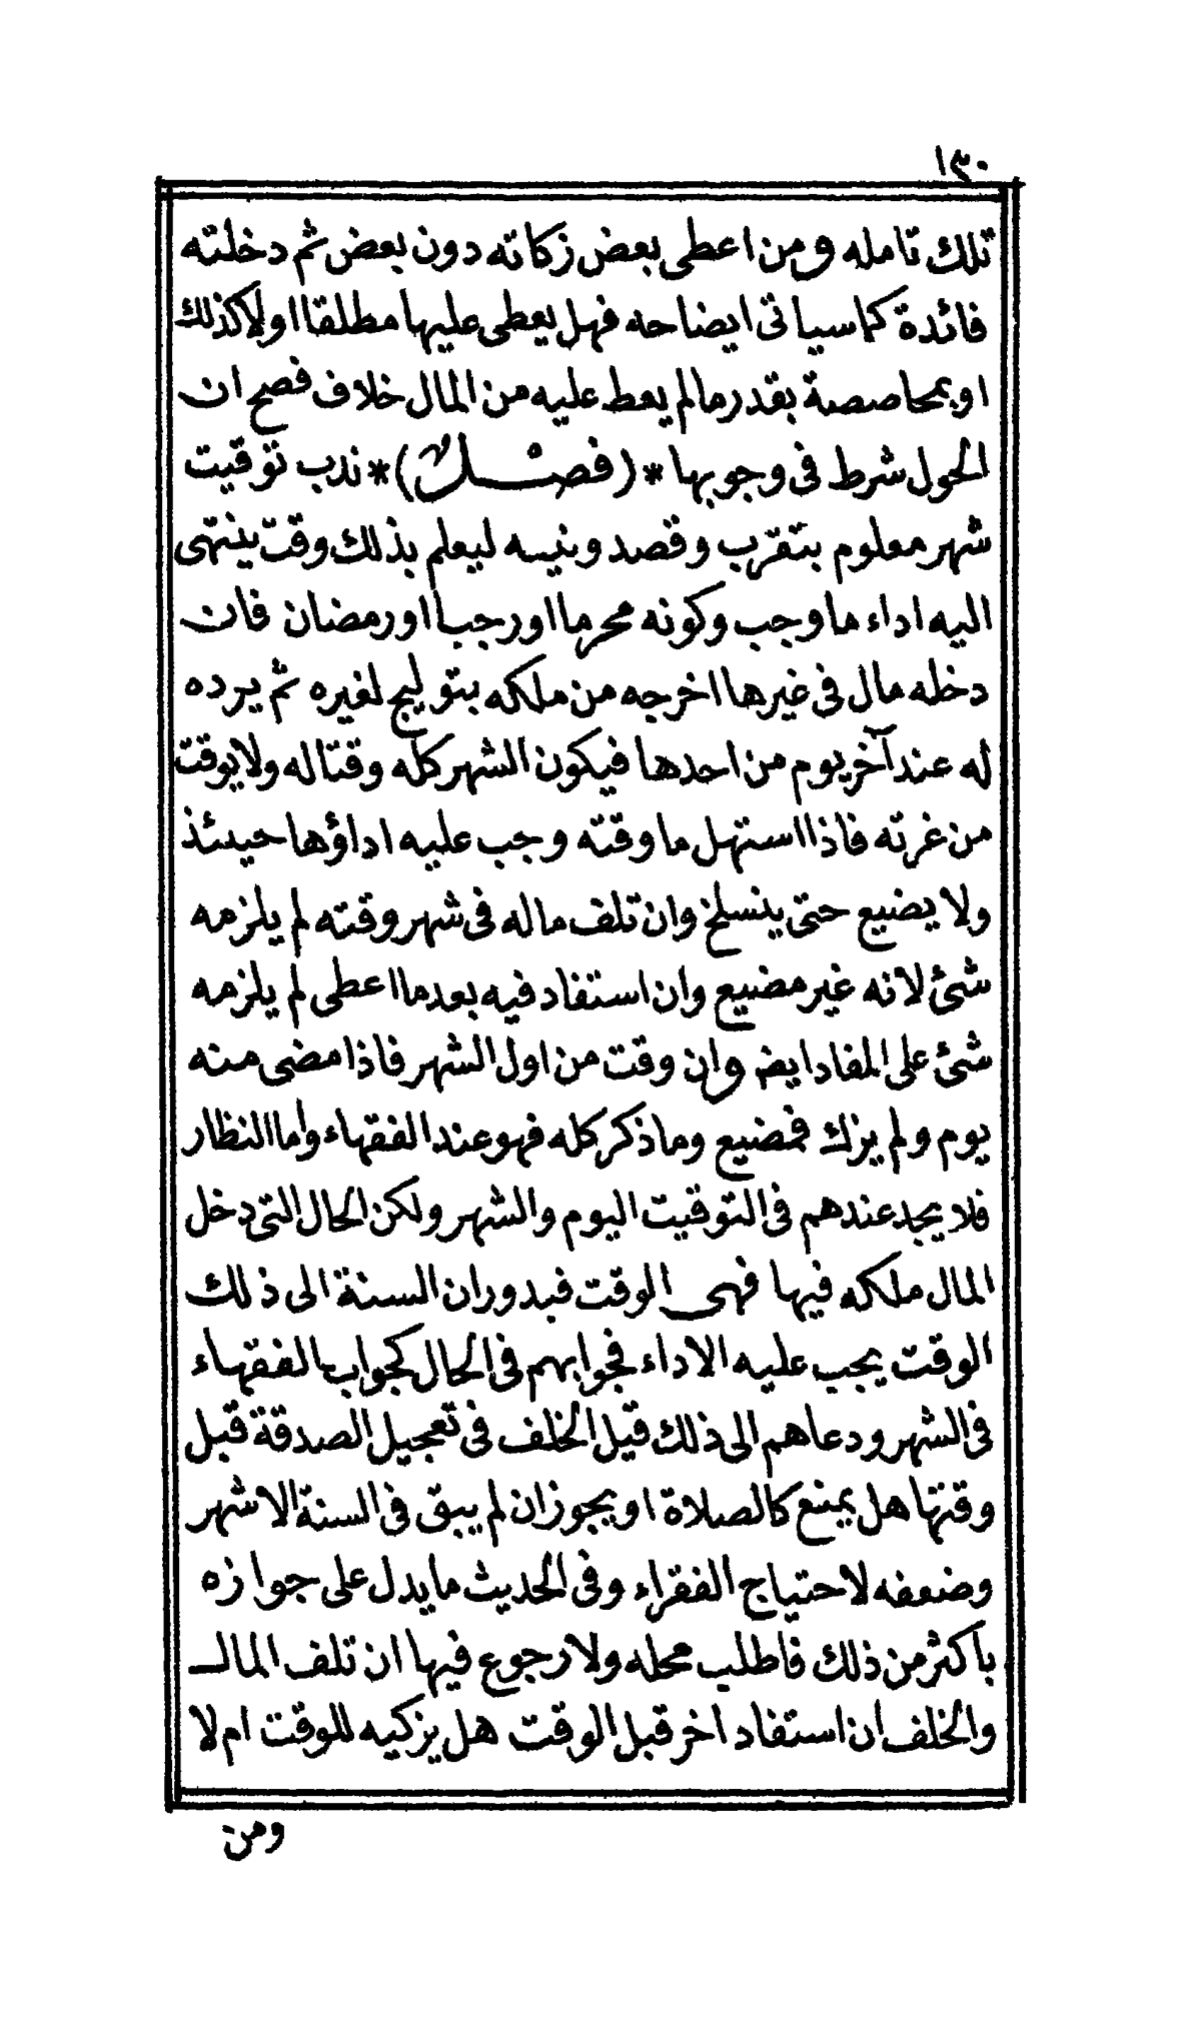 ١٣٠
تلك تامله ومن اعطى بعض زكاته دون بعض ثم دخلته
فائدة كما سياتى ايضاحه فهل يعطى عليها مطلقا اولا كذلك
او بمحاصصة بقدر ما لم يعط عليه من المال خلاف فصح ان
الحول شرط فى وجوبها *(فصل)* ندب توقيت
شهر معلوم بتقرب وقصد ونيه ليعلم بذلك وقت ينتهى
اليه اداء ما وجب وكونه محرما او رجبا او رمضان فان
دخله مال فى غيرها اخرجه من ملكه بتوليج لغيره ثم يرده
له عند آخر يوم من احدها فيكون الشهر كله وقتا له ولا يوقت
من غرته فاذا استهل ما وقته وجب عليه اداؤها حينئذ
ولا يضيع حتى ينسلخ وان تلف ماله فى شهر وقته لم يلزمه
شئ لانه غير مضيع وان استفاد فيه بعد ما اعطى لم يلزمه
شئ على المفاد ايضا وان وقت من اول الشهر فاذا مضى منه
يوم ولم يزك فمضيع وما ذكر كله فهو عند الفقهاء واما النظار
فلا يجد عندهم فى التوقيت اليوم والشهر ولكن الحال التى دخل
المال ملكه فيها فهى الوقت فبدوران السنة الى ذلك
الوقت يجب عليه الاداء فجوابهم فى الحال كجواب الفقهاء
فى الشهر ودعاهم الى ذلك قيل الخلف فى تعجيل الصدقة قبل
وقتها هل يمنع كالصلاة او يجوز ان لم يبق فى السنة الا شهر
وضعفه لاحتياج الفقراء وفى الحديث ما يدل على جوازه
باكثر من ذلك فاطلب محله ولا رجوع فيها ان تلف المال
والخلف ان استفاد اخر قبل الوقت هل يزكيه للوقت ام لا
ومن